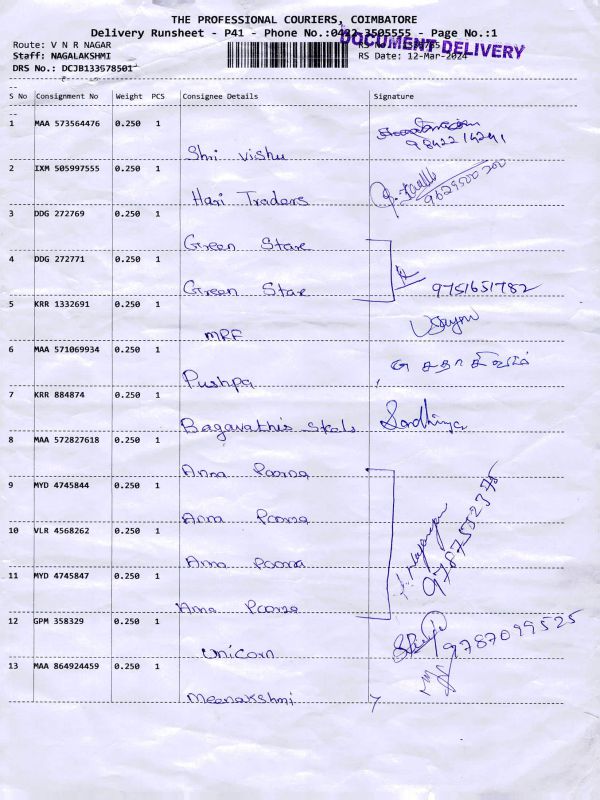 THE PROFESSIONAL COURIERS, COIMBATORE
Delivery Runsheet - P41 - Phone No.:0422-3505555 - Page No.:1
DOCUMENT DELIVERY
Route: V N R NAGAR
Staff: NAGALAKSHMI RS Date: 12-Mar-2024
DRS No.: DCJB133578501
S No Consignment No Weight PCS Consignee Details Signature
1 MAA 573564476 0.250 1
Shri Vishu
2 IXM 505997555 0.250 1
Hari Traders 9629500200
3 DDG 272769 0.250 1
Green Stare
4 DDG 272771 0.250 1
Green Stare 9751651782
5 KRR 1332691 0.250 1
MRF
6 MAA 571069934 0.250 1
Pushpa
7 KRR 884874 0.250 1
Bagavathis Sandhiya
8 MAA 572827618 0.250 1
Anna Poorna
9 MYD 4745844 0.250 1
Anna Poorna
10 VLR 4568262 0.250 1
Anna Poorna
11 MYD 4745847 0.250 1
Anna Poorna
12 GPM 358329 0.250 1
Unicorn 9787099525
13 MAA 864924459 0.250 1
Meenakshmi